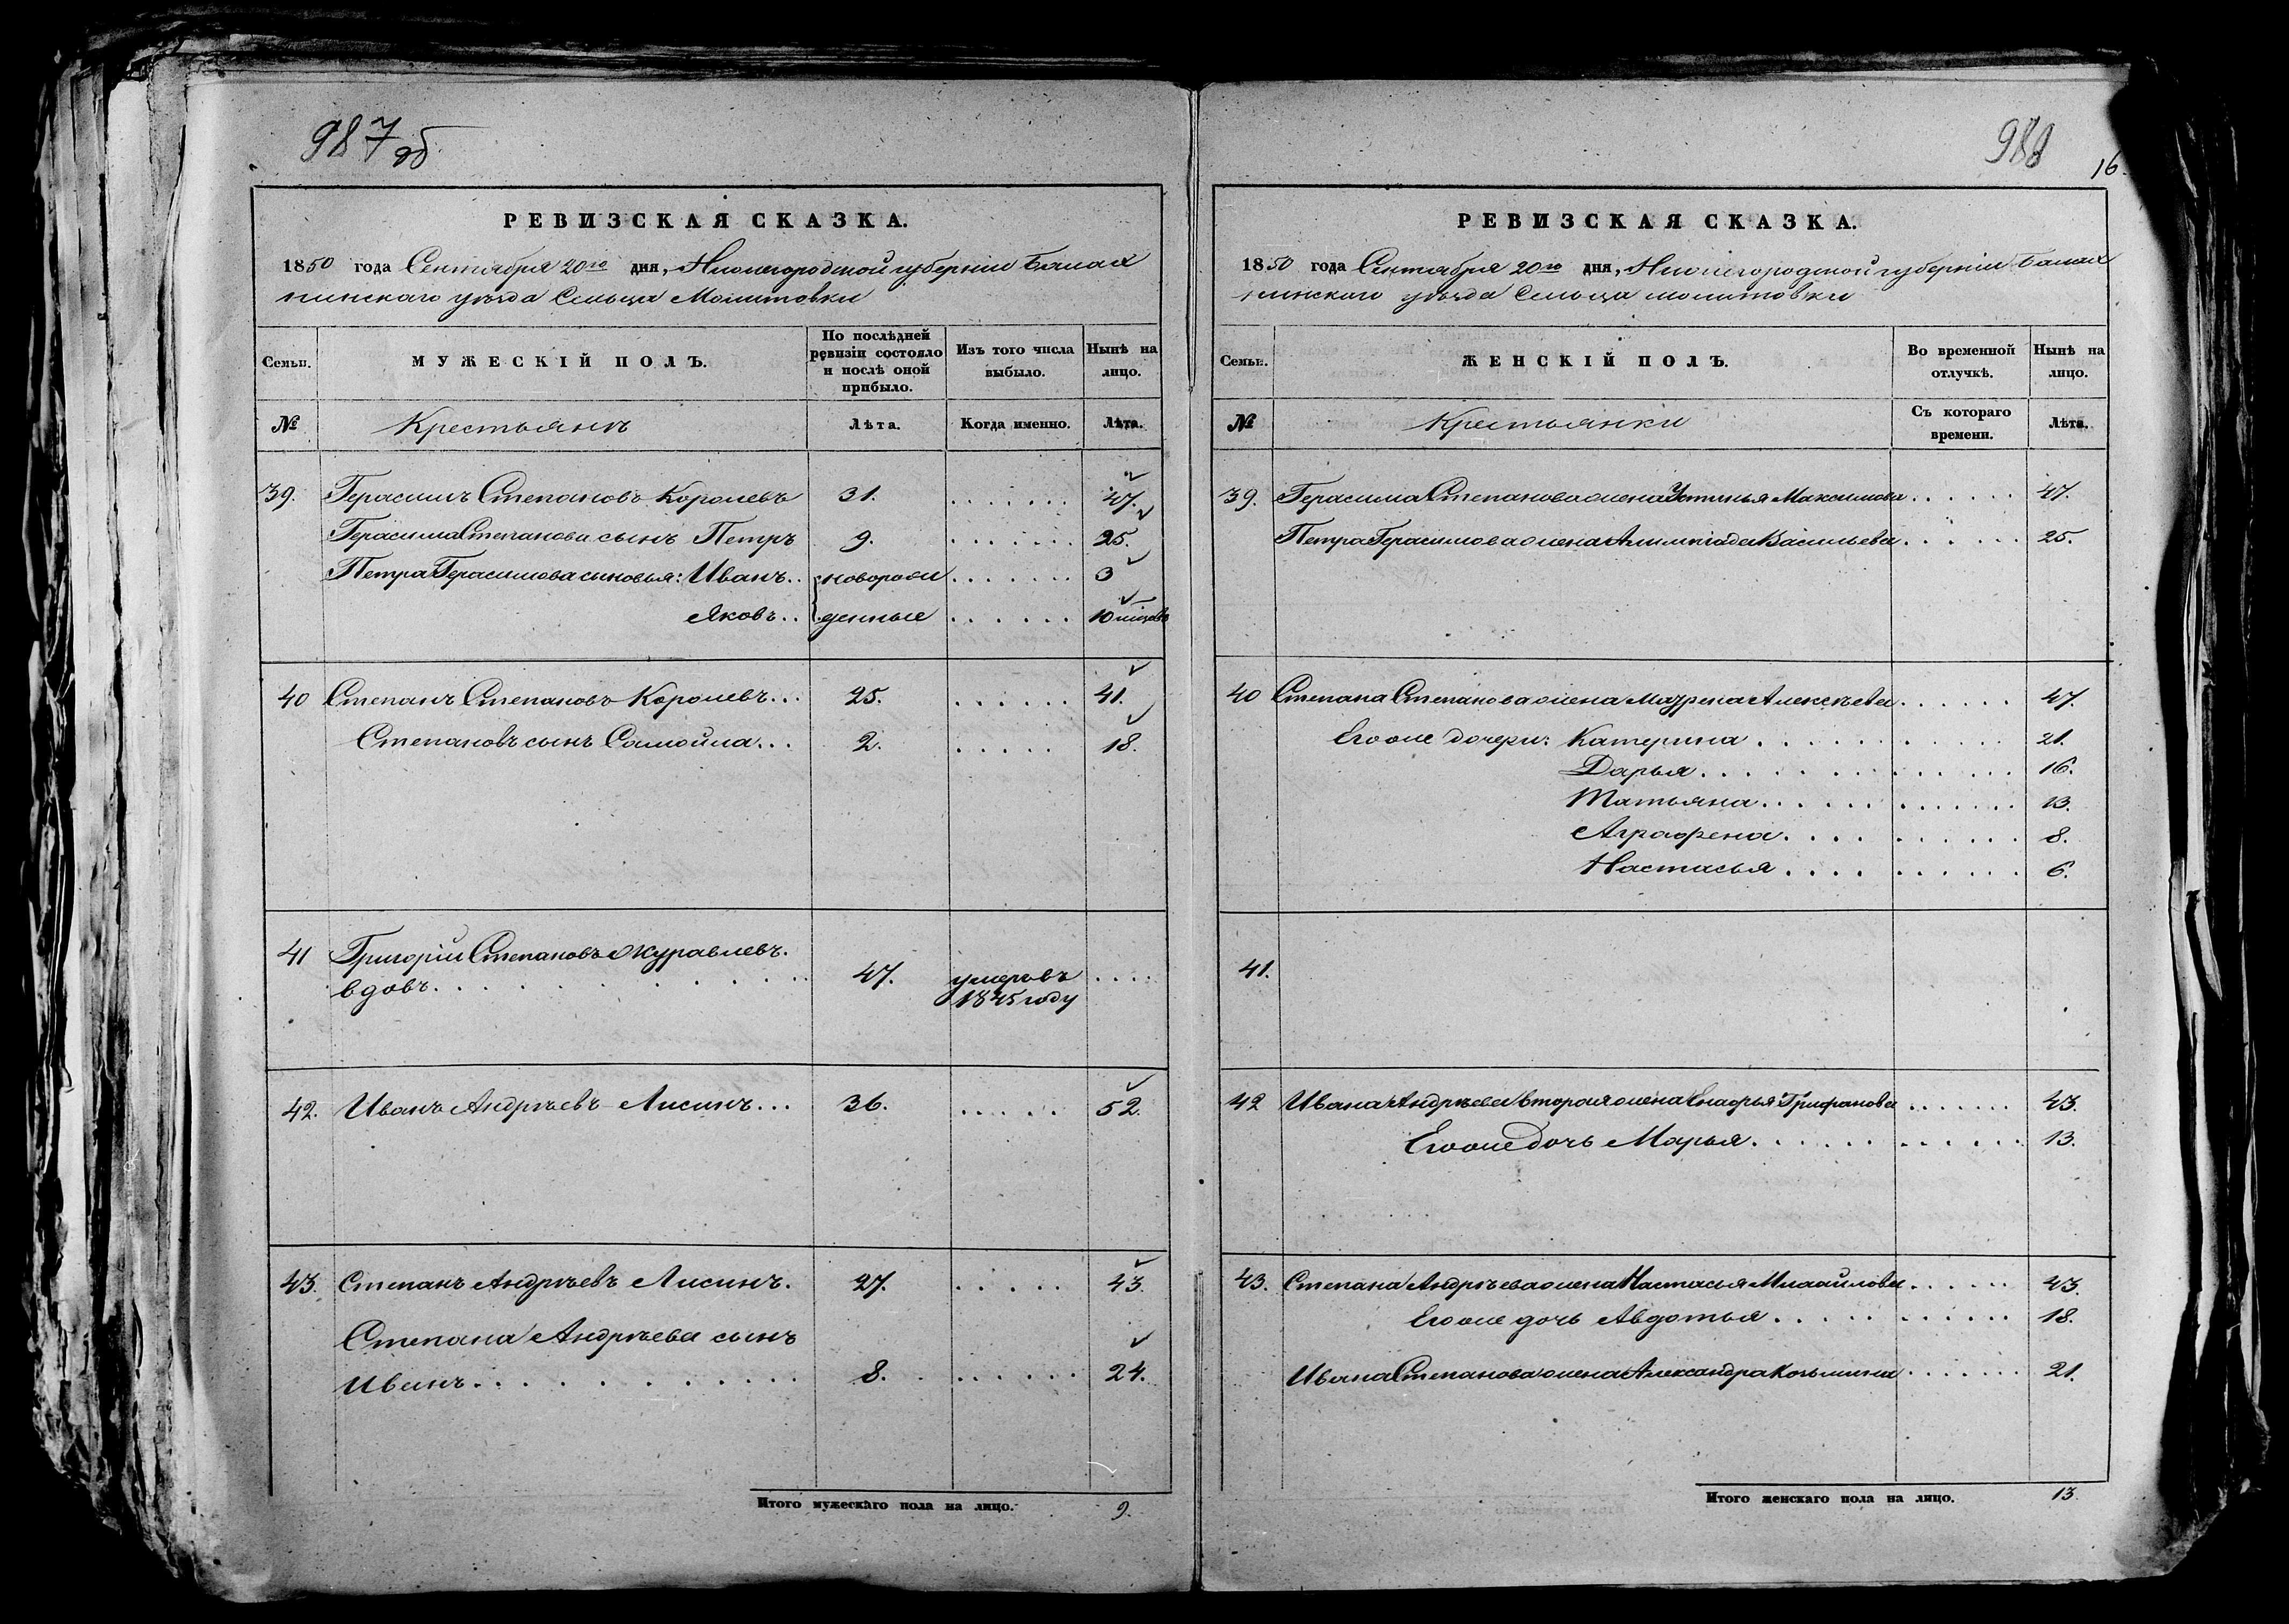 987 об
РЕВИЗСКАЯ СКАЗКА.
1850 года Сентября 20го дня, Нижегородской губерніи Балах
нинскаго уѣзда Сельца Молитовки
Семьи.
МУЖЕСКІЙ ПОЛЪ.
По послѣдней ревизіи состояло и послѣ оной прибыло.
Изъ того числа выбыло.
Нынѣ на лицо.
№
Крестьянъ
Лѣта.
Когда именно.
Лѣта.
39. Герасимъ Степановъ Королевъ 31. 47.
Герасима Степанова сынъ Петръ 9. 25.
Петра Герасимова сыновья: Иванъ.. новорож 3
Яковъ.. денные 10 мѣсяцовъ
40 Степанъ Степановъ Королевъ... 25. 41.
Степановъ сынъ Самойла... 2. 18.
41 Григорій Степановъ Журавлевъ.
вдовъ. 47. умеръ въ
1845 году
42. Иванъ Андрѣевъ Лисинъ... 36. 52.
43. Степанъ Андрѣевъ Лисинъ. 27. 43.
Степана Андрѣева сынъ
Иванъ. 8. 24.
Итого мужескаго пола на лицо. 9.
988
16.
РЕВИЗСКАЯ СКАЗКА.
1850 года Сентября 20го дня, Нижегородской губерніи Балах
нинскаго уѣзда Сельца Молитовки
Семьи.
ЖЕНСКІЙ ПОЛЪ.
Во временной отлучкѣ.
Нынѣ на лицо.
№
Крестьянки
Съ котораго времени.
Лѣта.
39. Герасима Степанова жена Устинья Максимова 47.
Петра Герасимова жена Алимпіада Васильева 25.
40 Степана Степанова жена Маврена Алексѣева 47.
Егоже дочери: Катерина 21.
Дарья 16.
Татьяна 13.
Аграфена 8.
Настасья 6.
41.
42 Ивана Андрѣева вторая жена Енафья Трифанова 43.
Егоже дочь Марья 13.
43. Степана Андрѣева жена Настасья Михайлова 43.
Егоже дочь Авдотья 18.
Ивана Степанова жена Александра Козьмина 21.
Итого женскаго пола на лицо. 13.